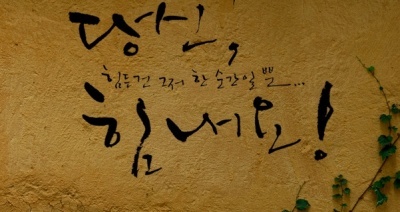 당신,
힘든건 그저 한 순간일 뿐...
힘내요!